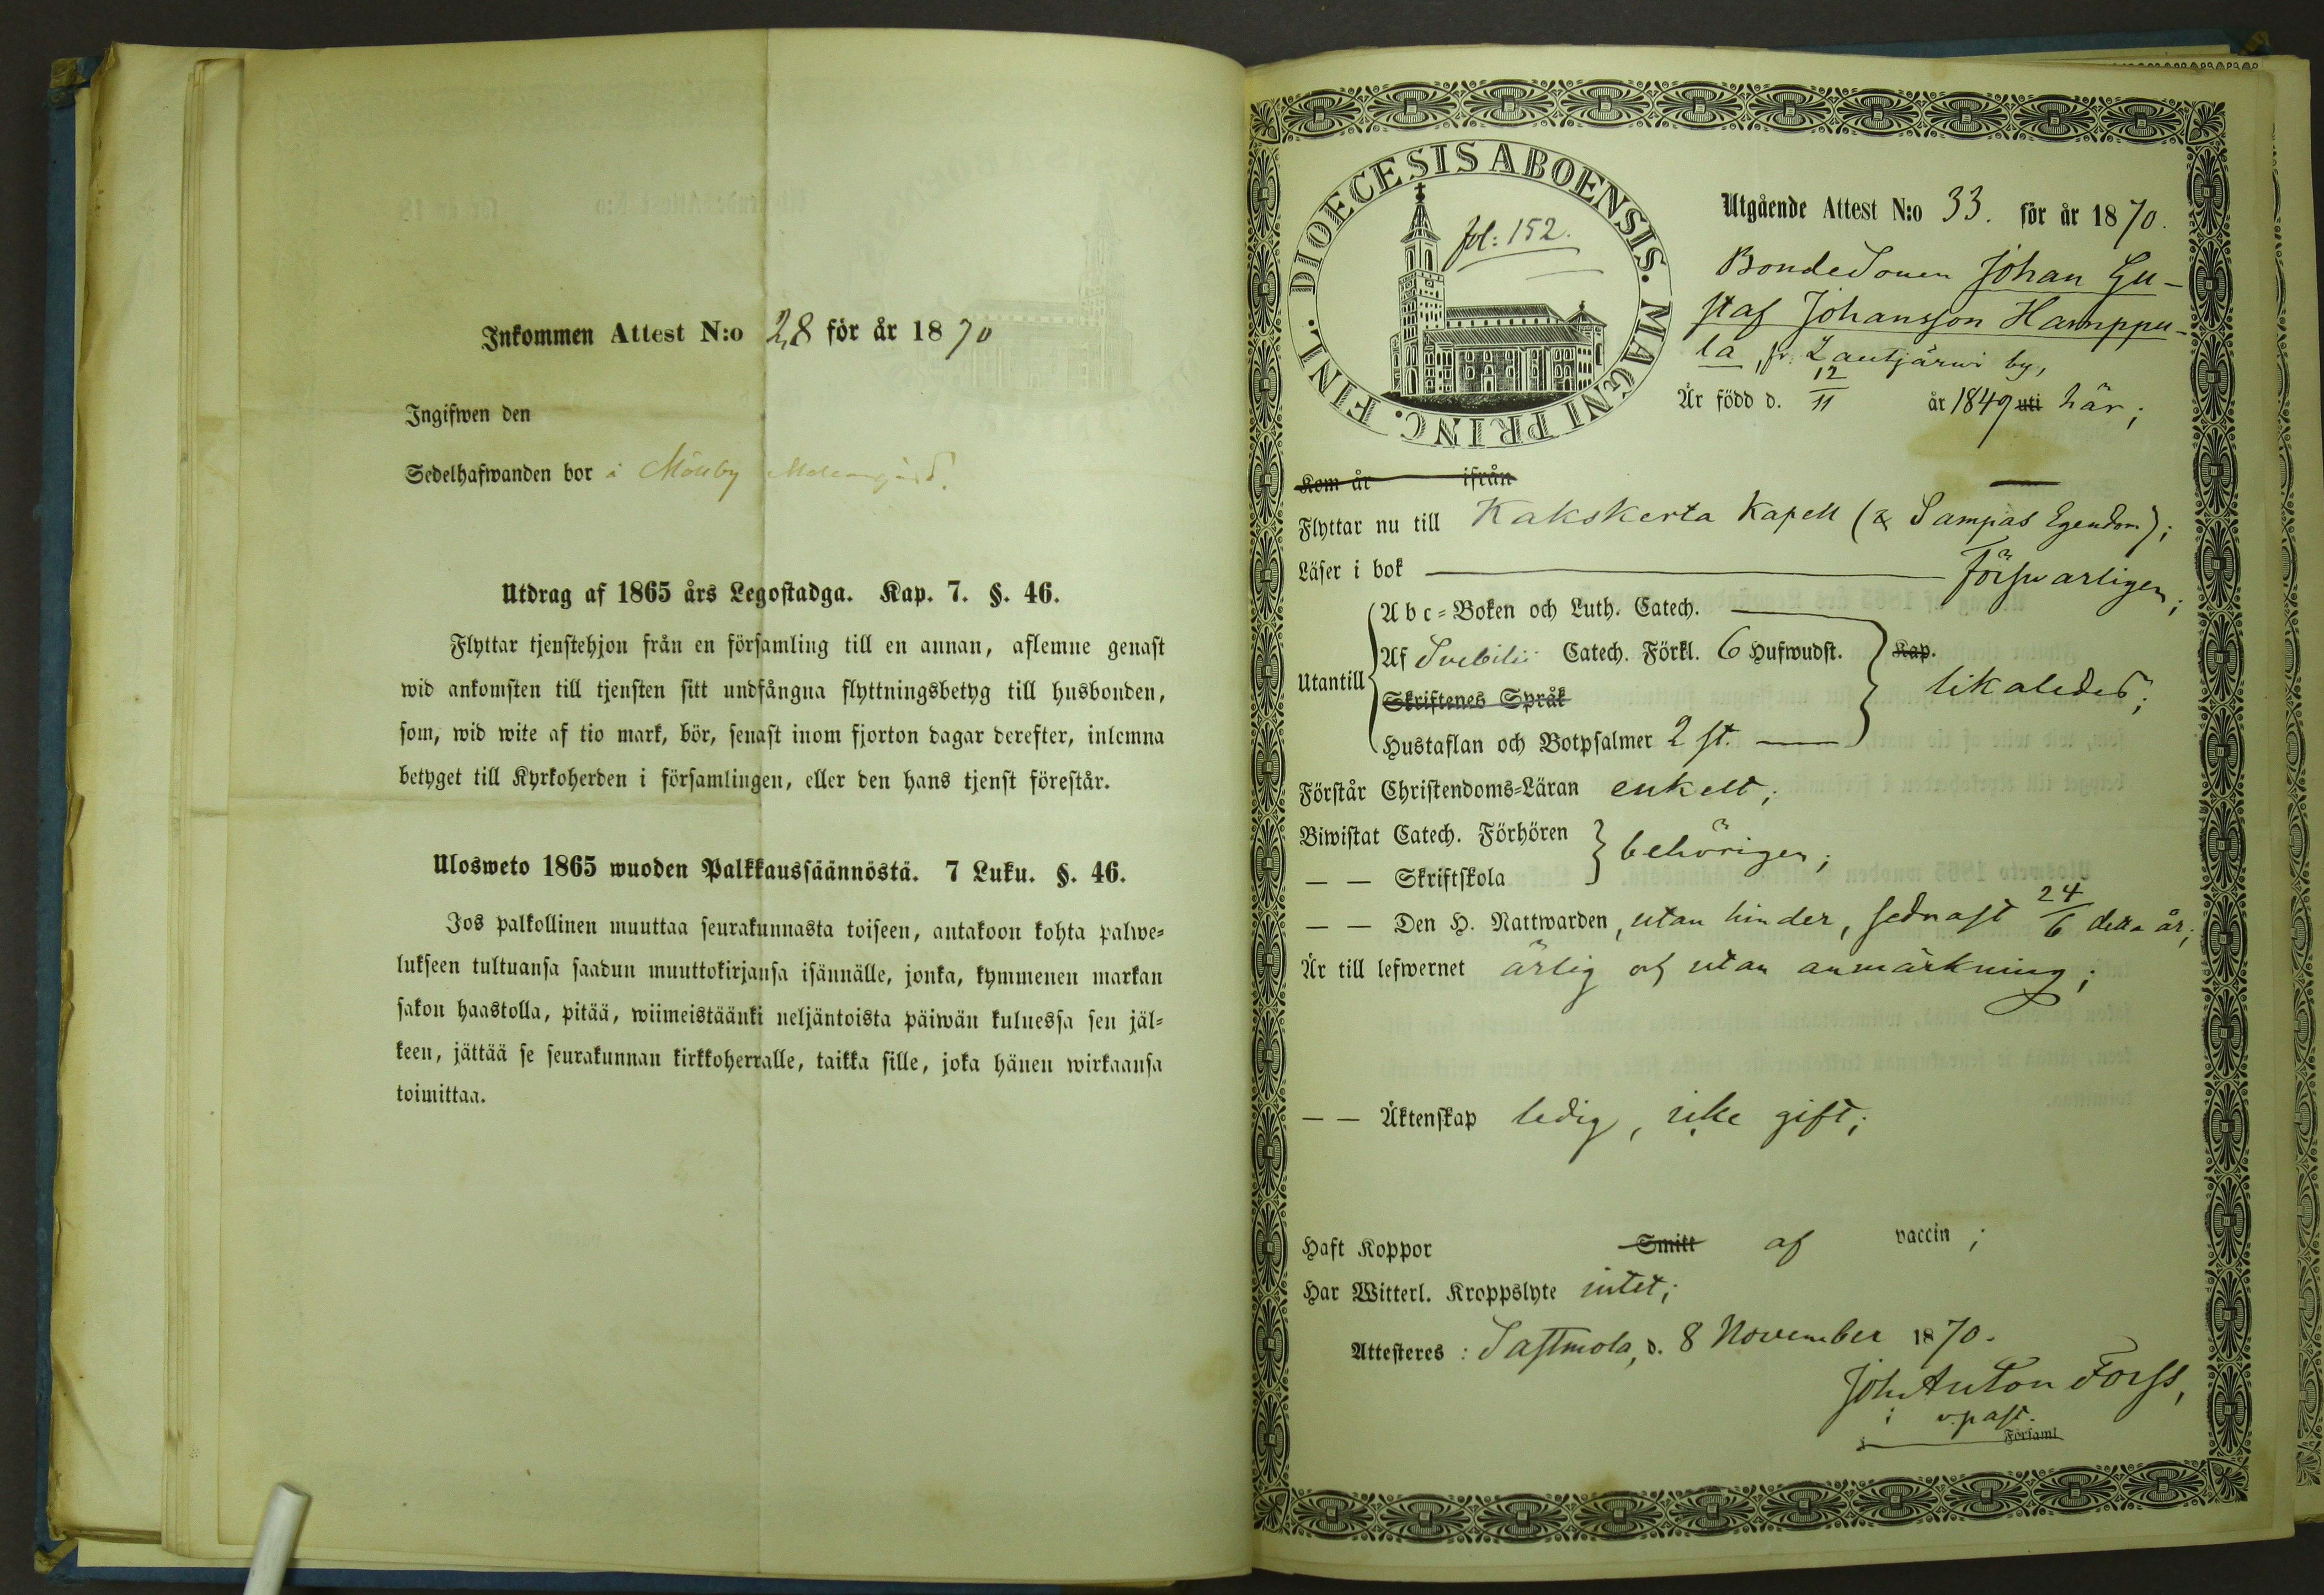 Inkommen Attest N:o 28 för år 1870
Ingifwen den
Sedelhafwanden bor i Mönby
Utdrag af 1865 års Legostadga. Kap. 7. §. 46.
Flyttar tjenstehjon från en församling till en annan, aflemne genast
wid ankomsten till tjensten sitt undfångna flyttningsbetyg till husbonden,
som, wid wite af tio mark, bör, senast inom fjorton dagar derefter, inlemna
betyget till Kyrkoherden i församlingen, eller den hans tjenst förestår.
Ulosweto 1865 wuoden Palkkaussäännöstä. 7 Luku. §. 46.
Jos palkollinen muuttaa seurakunnasta toiseen, antakoon kohta palwe-
lukseen tultuansa saadun muuttokirjansa isännälle, jonka, kymmenen markan
sakon haastolla, pitää, wiimeistäänki neljäntoista päiwän kuluessa sen jäl-
keen, jättää se seurakunnan kirkkoherralle, taikka sille, joka hänen wirkaansa
toimittaa.
DIOECESIS ABOENSIS. MAGNI PRINC. FINL.
fol: 152.
Utgående Attest N:o 33. för år 1870.
BondeSonen Johan Gu-
staf Johansson Hamppu-
la, fr. Lautjärwi by,
Är född d. 12/11 år 1849 uti här;
Kom år ifrån
Flyttar nu till Kakskerta Kapell (& Sampas Egendom);
Läser i bok försvarligen;
Utantill
Abc-Boken och Luth. Catech.
Af Svebilii Catech. Förkl. 6 Hufwudst. Kap.
Skriftenes Språk likaledes;
Hustaflan och Botpsalmer 2 st.
Förstår Christendoms-Läran enkelt;
Biwistat Catech. Förhören
— — Skriftskola behörigen;
— — Den H. Nattwarden, utan hinder, sednast 24/6 detta år;
Är till lefwernet ärlig och utan anmärkning;
— — Äktenskap ledig, icke gift;
Haft Koppor Smitt af vaccin;
Har Witterl. Kroppslyte intet;
Attesteres: Sastmola, d. 8 November 1870.
Joh. Anton Forss,
v. past.
i Församl